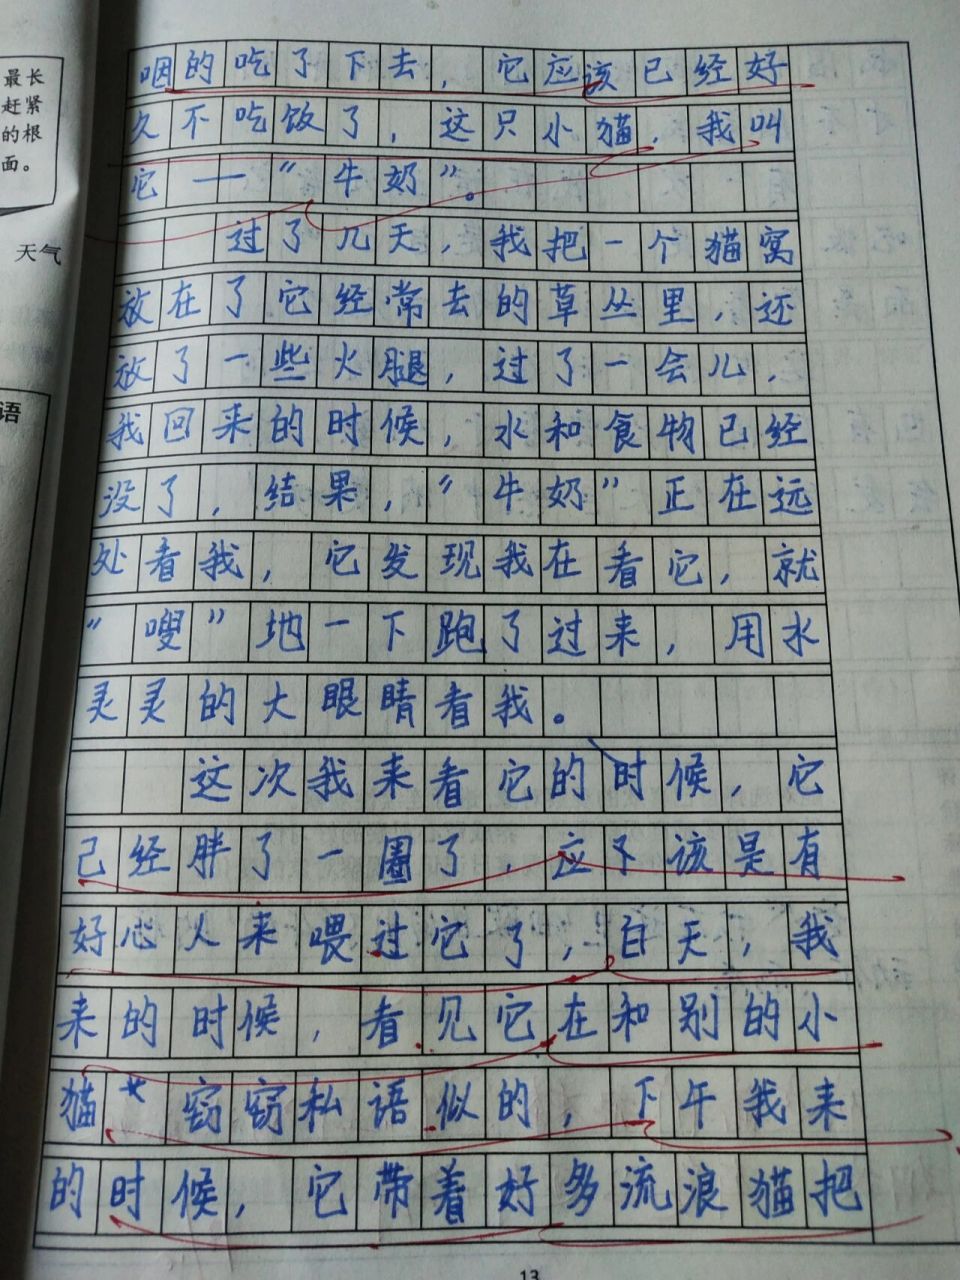 最长
赶紧
的根
面。
天气
语
咽的吃了下去，它应该已经好
久不吃饭了，这只小猫，我叫
它——“牛奶”。
过了几天，我把一个猫窝
放在了它经常去的草丛里，还
放了一些火腿，过了一会儿，
我回来的时候，水和食物已经
没了，结果，“牛奶”正在远
处看我，它发现我在看它，就
“嗖”地一下跑了过来，用水
灵灵的大眼睛看我。
这次我来看它的时候，它
已经胖了一圈了，应下该是有
好心人来喂过它了，白天，我
来的时候，看见它在和别的小
猫 窃窃私语似的，下午我来
的时候，它带着好多流浪猫把
13